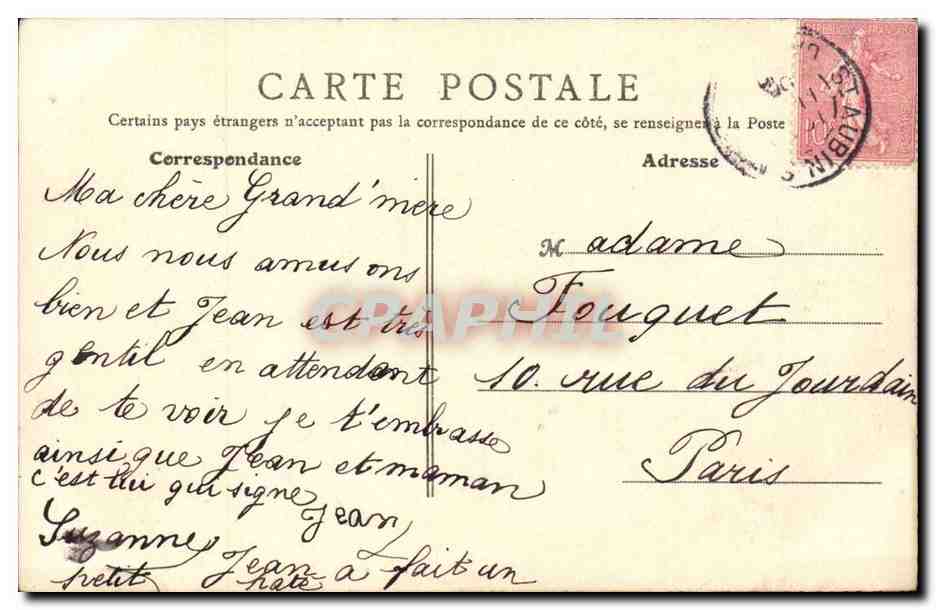 CARTE POSTALE
Certains pays étrangers n'acceptant pas la correspondance de ce côté, se renseigner à la Poste
Correspondance
Ma chère Grand'mère
Nous nous amusons
bien et Jean est très
gentil en attendant
de te voir je t'embrasse
ainsi que Jean et maman
c'est lui qui signe
Jean
Suzanne
Jean a fait un
petit paté
Adresse
Madame
Fouquet
10. rue du Jourdain
Paris
ST AUBIN S
CPAPHIL